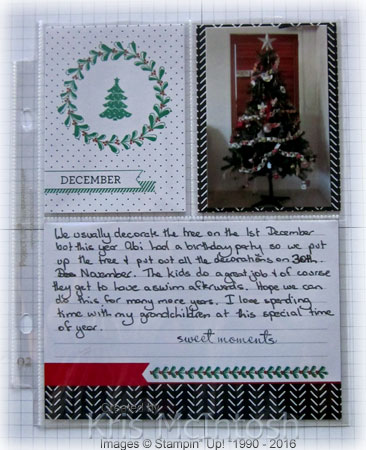 DECEMBER
We usually decorate the tree on the 1st December
but this year Abi had a birthday party so we put
up the tree & put out all the decorations on 30th
Dec November. The kids do a great job & of course
they get to have a swim afterwards. Hope we can
do this for many more years. I love spending
time with my grandchildren at this special time
of year.
sweet moments
Created by
Kris McIntosh
Images © Stampin' Up! ®1990 - 2016